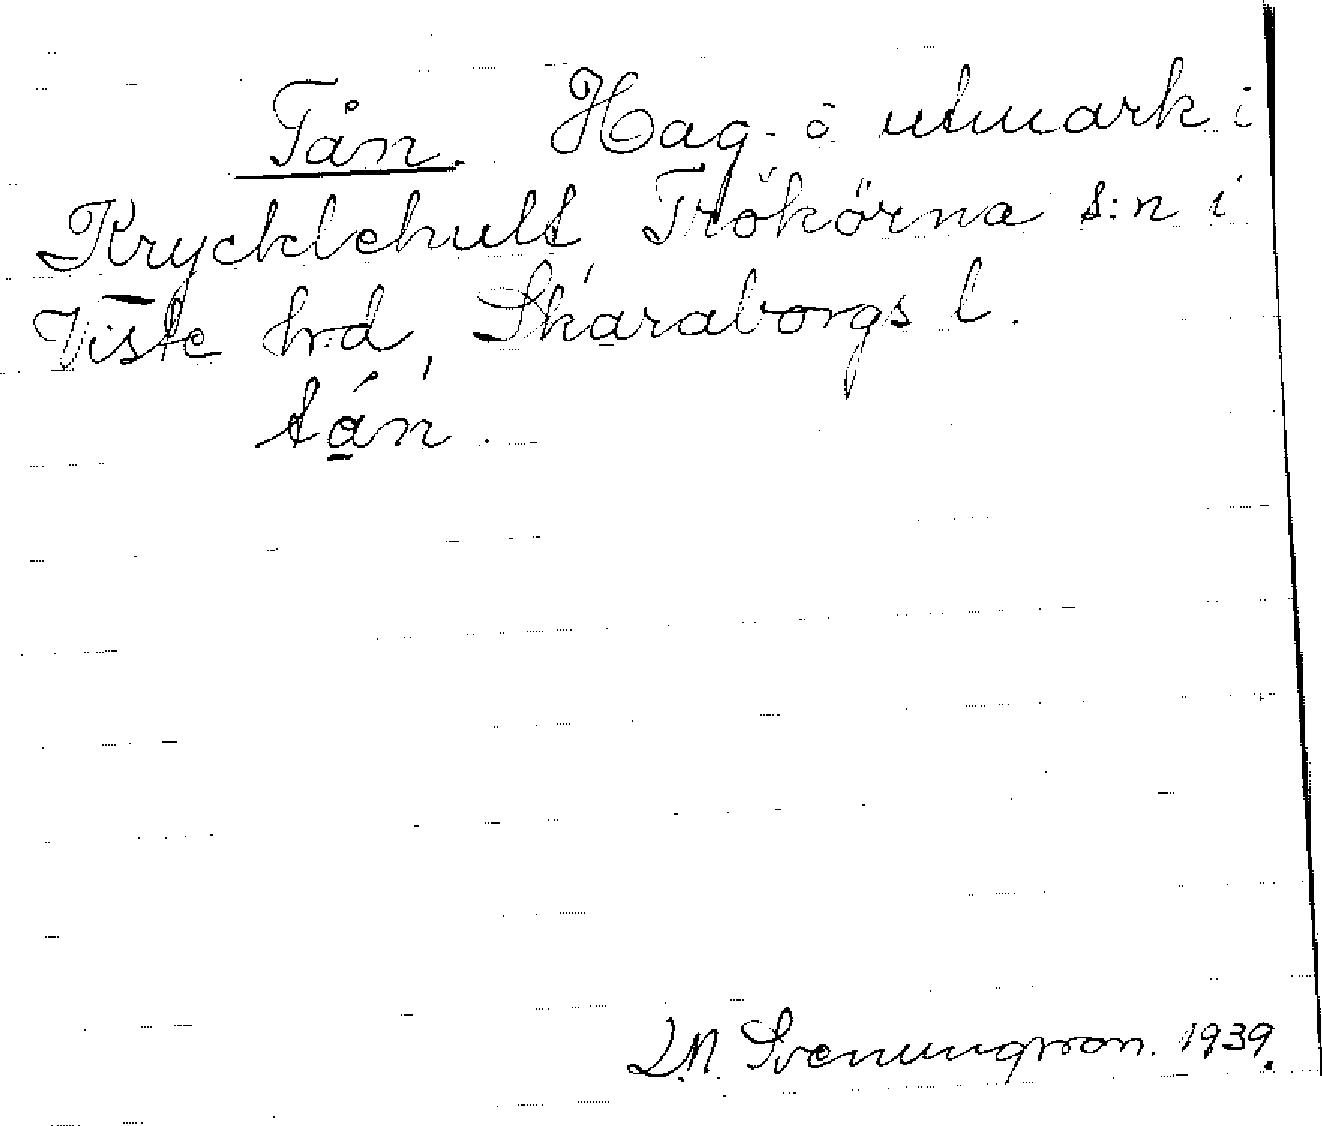 Tån. Hag- o utmark i
Krycklehult Trökörna s:n i
Viste hrd, Skaraborgs l.
tån.
L.N. Svenungsson. 1939.